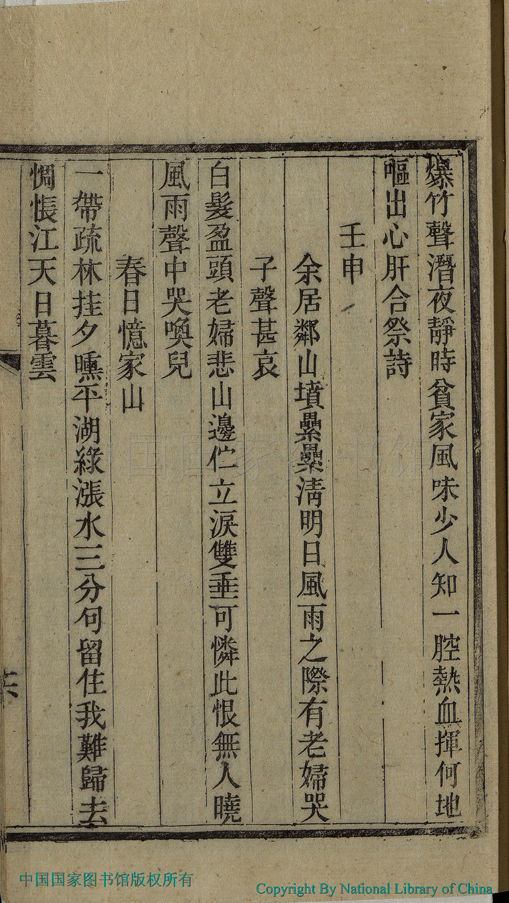 爆竹聲潛夜靜時貧家風味少人知一腔熱血揮何地
嘔出心肝合祭詩
壬申
余居鄰山墳纍纍淸明日風雨之際有老婦哭
子聲甚哀
白髮盈頭老婦悲山邊伫立淚雙垂可憐此恨無人曉
風雨聲中哭喚兒
春日憶家山
一帶疏林挂夕曛平湖綠漲水三分句留住我難歸去
惆悵江天日暮雲
中国国家图书馆版权所有
Copyright By National Library of China